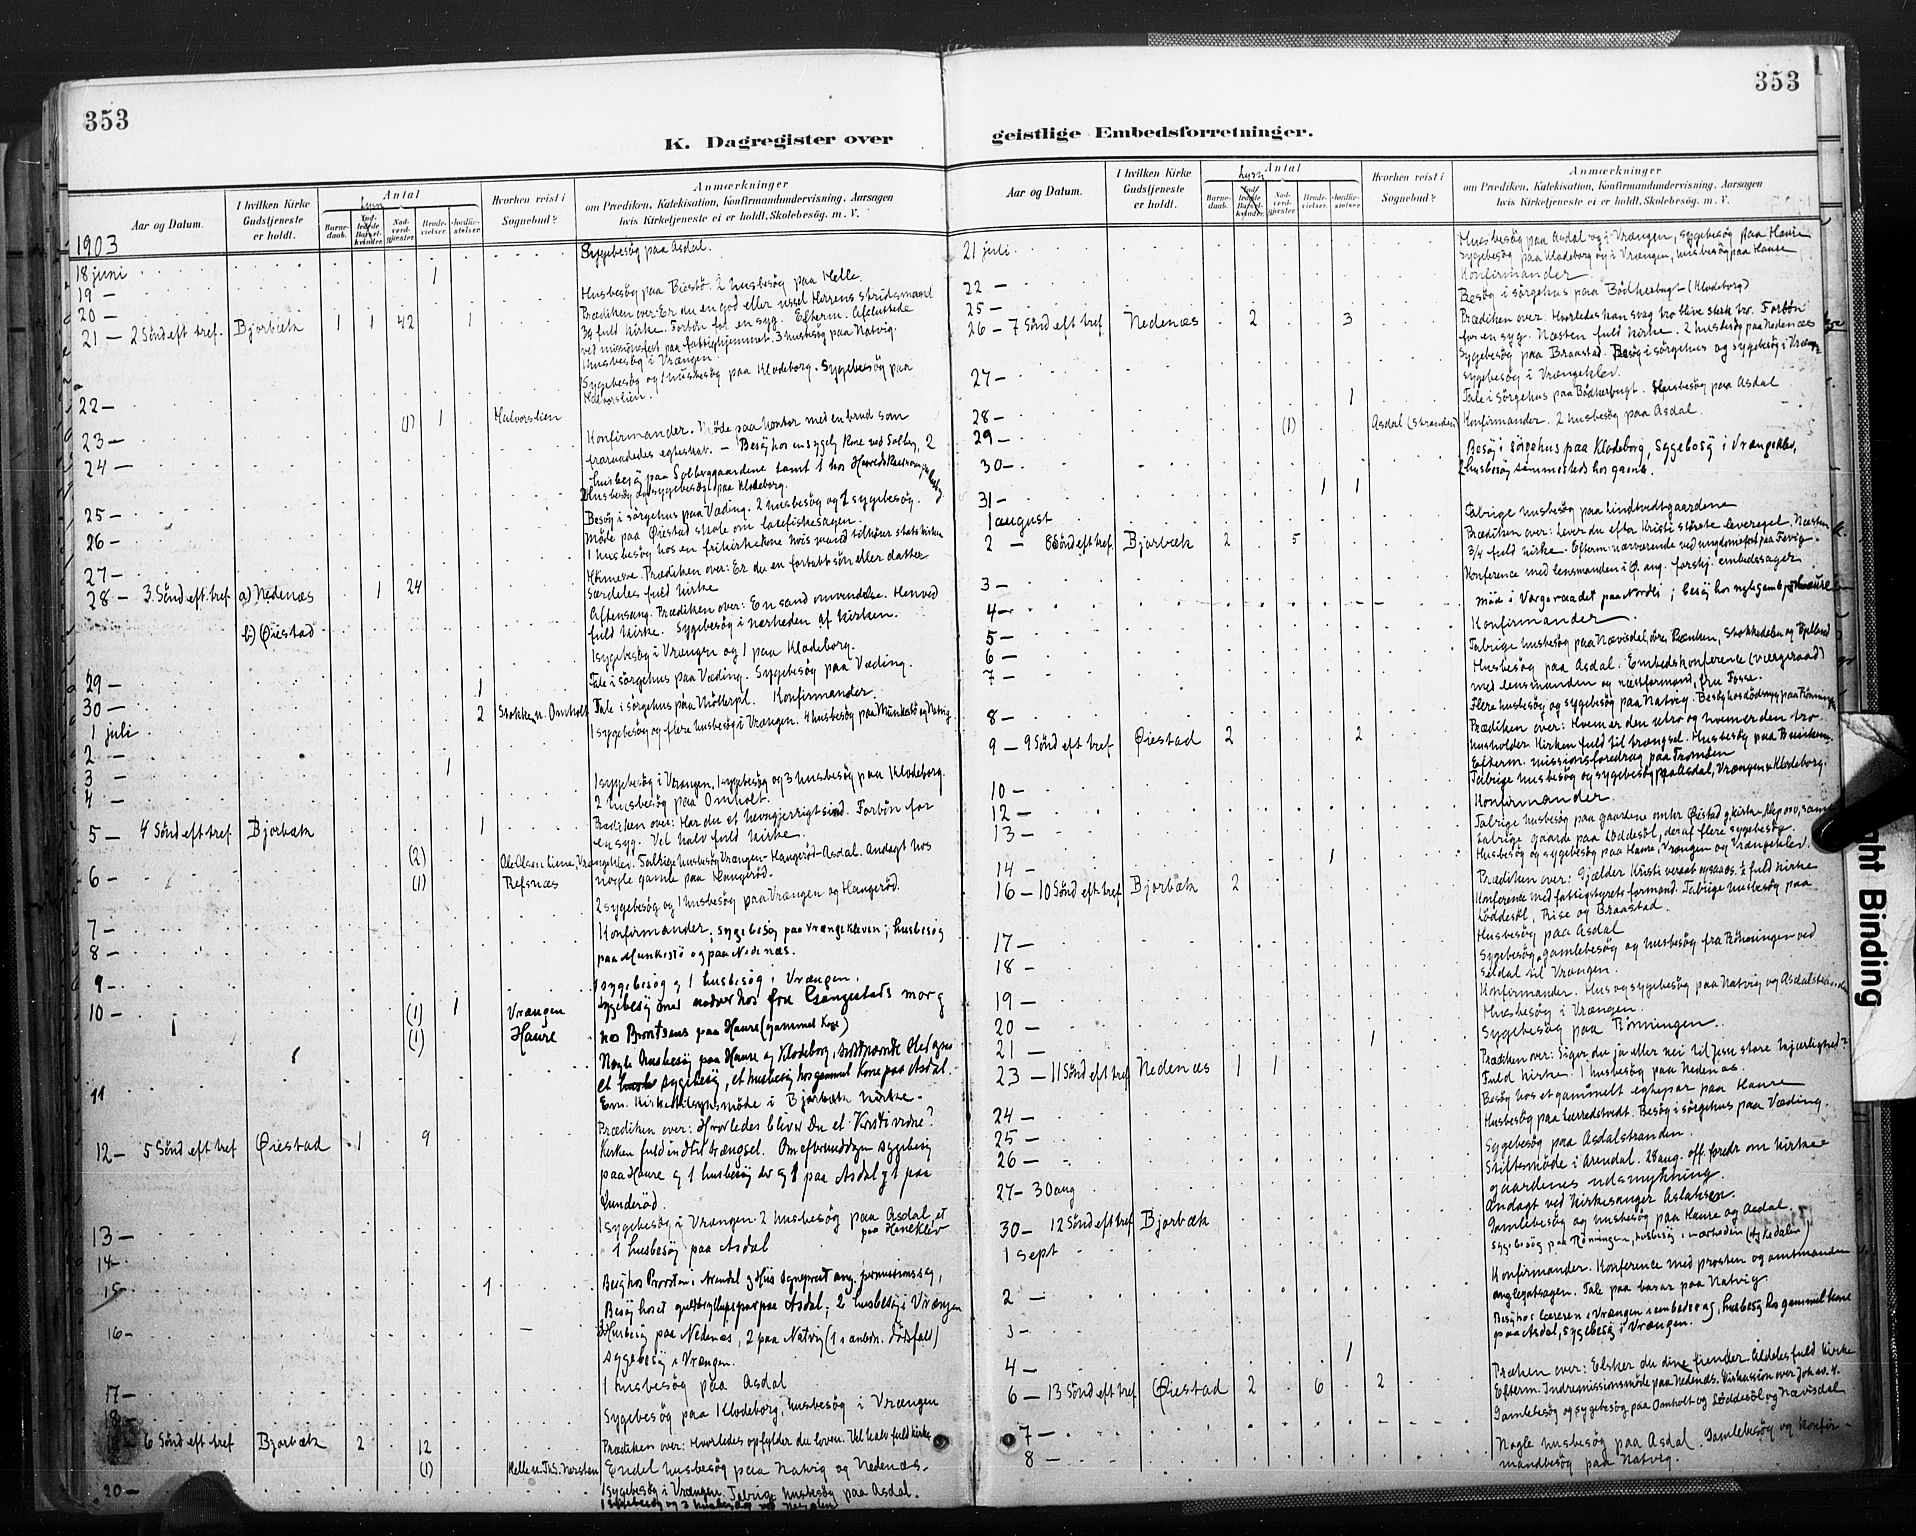 353
K. Dagregister over
Aar og Datum.
I hvilken Kirke Gudstjeneste er holdt.
Antal
Barnedaab.
Indledede Barselkvinder.
Nadverdgjæster
Brudevielser.
Jordfæstelser
Hvorhen reist i Sognebud?
Anmærkninger
om Prædiken, Katekisation, Konfirmandundervisning. Aarsagen
hvis Kirketjeneste ei er holdt. Skolebesøg. m. V.
1903
Sygebesøg paa Asdal.
18 juni 1
19 — Husbesøg paa Biestø. 2 husbesøg paa Helle.
20 — Prædiken over: Er du en god eller ussel Herrens stridsmand
21 — 2 Sønd eft tref. Bjorbæk 1 1 42 1 3/4 fuld kirke. Forbøn for en syg. Efterm. Afsluttede
ved missionsfest paa fattighjemmet. 3 husbesøg paa Natvig.
Husbesøg i Vrængen.
Sygebesøg og 1 husbesøg paa Klodeborg. Sygebesøg paa
Halvorslien.
22 — (1) 1 Halvorslien
23 — Konfirmander. Møde paa kontor med en brud som
fraraadedes egteskab. — Besøg hos en sygelig kone ved Solberg, 2
24 — husbesøg paa Solberggaardene samt 1 hos
2 husbesøg og sygebesøg paa Klodeborg.
25 — Besøg i sørgehus paa Væding. 2 husbesøg og 1 sygebesøg.
26 — Møde paa Øiestad skole om laxefiskesagen.
1 husbesøg hos en frikirkekone hvis mand tilhører statskirken
27 — Høimesse. Prædiken over: Er du en fortabt søn eller datter
28 — 3 Sønd eft. tref a) Nedenæs 1 24 Særdeles fuld kirke
b) Øiestad Aftensang. Prædiken over: En sand omvendelse. Henved
fuld kirke. Sygebesøg i nærheden af kirken.
1 sygebesøg i Vrængen og 1 paa Klodeborg.
29 — 1 Tale i sørgehus paa Væding. Sygebesøg paa Væding.
30 — 2 Stokken. Omholt Tale i sørgehus paa Konfirmander
1 juli 1 sygebesøg og flere husbesøg i Vrængen. 4 husbesøg paa Munkestø og Natvig
2 —
3 — 1 1 sygebesøg i Vrængen, 1 sygebesøg og 3 husbesøg paa Klodeborg.
4 — 2 husbesøg paa Omholt.
5 — 4 Sønd eft tref Bjorbæk 1 Prædiken over: Har du et hevngjerrigt sind. Forbøn for
en syg. Vel halv fuld kirke.
(2) Ole Olsen Liene, Vrængekler. Talrige husbesøg Vrængen - Haugerød - Asdal. Andagt hos
6 — (1) Refsnæs nogle gamle paa Haugerød.
2 sygebesøg og 1 husbesøg paa Vrængen og Haugerød.
7 — Konfirmander; sygebesøg paa Vrængekleven; husbesøg
8 — paa Munkestø og paa Nedenæs.
9 — 1 sygebesøg og 1 husbesøg i Vrængen.
10 — (1) 1 Vrængen
(1) Haure hos Brontsens paa Haure (gammel kone)
Nogle husbesøg paa Haure og Klodeborg,
et sygebesøg, et husbesøg hos gammel kone paa Asdal.
11 Em. kirketilsynsmøde i Bjorbæk kirke.
Prædiken over: Hvorledes bliver Du et Kristi vidne?
12 — 5 Sønd eft tref Øiestad 1 9 Kirken fuld indtil trængsel. Om eftermiddagen sygebesøg
paa Haure og 1 husbesøg der og 1 paa Asdal og 1 paa
Lunderød.
13 — 1 Sygebesøg i Vrængen. 2 husbesøg paa Asdal, et
paa Haneklev
14 — 1 husbesøg paa Asdal
15 — 1 Besøg hos Provsten i Arendal og Hiis sognepræst ang. permissionssag,
Besøg hos et guldbryllupspar paa Asdal. 2 husbesøg i Vrængen
16 — 3 Husbesøg paa Nedenæs, 2 paa Natvig (1 i anledn. dødsfald)
sygebesøg i Vrængen.
17 — 1 husbesøg paa Asdal
18 — Sygebesøg paa Klodeborg, husbesøg i Vrængen
6 Sønd eft tref Bjorbæk 2 12 Prædiken over: Hvorledes opfylder du loven. Vel halv fuld kirke
(1) Helle Endel husbesøg paa Natvig og Nedenæs.
20 — 1 Sygebesøg i Vrængen. Talrige husbesøg paa Asdal.
1 sygebesøg og 3 husbesøg
353
geistlige Embedsforretninger.
Aar og Datum.
I hvilken Kirke Gudstjeneste er holdt.
Antal
Barnedaab.
Indledede Barselkvinder.
Nadverdgjæster
Brudevielser.
Jordfæstelser
Hvorhen reist i Sognebud?
Anmærkninger
om Prædiken, Katekisation, Konfirmandundervisning. Aarsagen
hvis Kirketjeneste ei er holdt. Skolebesøg. m. V.
21 juli Husbesøg paa Asdal og i Vrængen, sygebesøg paa Haure
Sygebesøg paa Klodeborg og i Vrængen, husbesøg paa Haure
22 — Konfirmander
25 — Besøg i sørgehus paa Bødkerbugt (Klodeborg)
26 — 7 Sønd eft tref Nedenæs 2 3 Prædiken over: Hvorledes kan svag tro blive sterk tro. Forbøn
for en syg. Næsten fuld kirke. 2 husbesøg paa Nedenæs
Sygebesøg paa Braastad. Besøg i sørgehus og sygebesøg i Vrængen
27 — sygebesøg i Vrængeklev.
1 Tale i sørgehus paa Bødkerbugt. Husbesøg paa Asdal
28 — (1) Asdal (stranden) Konfirmander. 2 husbesøg paa Asdal.
29 — Besøg i sørgehus paa Klodeborg, Sygebesøg i Vrængeklev,
30 — 2 husbesøg sammesteds hos gamle.
31 — 1 1
1 august Talrige husbesøg paa Lindtvedtgaardene
2 — 8 Sønd eft tref. Bjorbæk 2 5 Prædiken over: Lever du efter Kristi største leveregel. Næsten
3/4 fuld kirke. Efterm: nærværende ved ungdomsfest paa Fevig.
3 — Konference med lensmanden i Ø. ang. forskj. embedssager
4 — Møde i Værgeraadet paa Nordli; besøg hos Haure
5 — Konfirmander.
6 — Talrige husbesøg paa Nævisdal, øvre Rænken, Stokkedalen og Bjelland
7 — Husbesøg paa Asdal. Embedskonferente (værgeraad)
med lensmanden og næstformand, fru Fosse.
8 — Flere husbesøg og sygebesøg paa Natvig. Besøg hos dødssyg paa Rønning
9 — 9 Sønd eft tref Øiestad 2 2 Prædiken over: Hvem er den utro og hvem er den tro
husholder. Kirken fuld til trængsel. Husbesøg paa
Efterm. missionsforedrag paa Tromøen
10 — Talrige husbesøg og sygebesøg paa Asdal, Vrængen & Klodeborg.
12 — Konfirmander.
13 — Talrige husbesøg paa gaardene under Øiestad kirke
talrige gaarde paa Løddesøl, deraf flere sygebesøg.
14 — 1 Husbesøg og sygebesøg paa Haure, Vrængen og Vrængeklev.
16 — 10 Sønd eft tref Bjorbæk 2 Prædiken over: Gjælder Kristi veraab ogsaa os. 1/2 fuld kirke
Konference med fattigstyrets formand. Talrige husbesøg paa
Løddesøl, Rise og Braastad.
17 — Husbesøg paa Asdal
18 — Sygebesøg, gamlebesøg og husbesøg fra Rønningen ved
Seldal til Vrængen.
19 — Konfirmander. Hus og sygebesøg paa Natvig og Asdalstranden
20 — Husbesøg i Vrængen.
21 — 1 Sygebesøg paa Rønningen.
23 — 11 Sønd eft tref Nedenæs 1 1 Prædiken over: Siger du ja eller nei til Jesu store kjærlighed?
Fuld kirke. 1 husbesøg paa Nedenæs.
24 — Besøg hos et gammelt egtepar paa Haure
25 — Husbesøg paa Lærredstvedt. Besøg i sørgehus paa Væding.
26 — Sygebesøg paa Asdalstranden.
27 — 30 aug Stiftsmøde i Arendal. 28 aug. off. foredr om kirke
gaardenes udsmykning.
30 — 12 Sønd eft tref Bjorbæk Andagt ved kirkesanger Aslaksen.
1 Sept Gamlebesøg og husbesøg paa Haure og Asdal.
sygebesøg paa Rønningen, husbesøg i nærheden
2 — Konfirmander. Konference med prosten og amtmanden
anglegatsagen. Tale paa basar paa Natvig
3 — Besøg hos læreren i Vrængen i embedssag, husbesøg hos gammel kone
paa Asdal, sygebesøg i Vrængen.
4 — 1
6 — 13 Sønd eft tref Øiestad 2 6 2 Præken over: Elsker du dine fiender. Aldeles fuld kirke
Efterm. Indremissionsmøde paa Nedenæs. Diskussion over Joh.
7 — Gamlebesøg og sygebesøg paa Omholt og Løddesøl og Nævisdal
8 — Nogle husbesøg paa Asdal. Gamlebesøg og konfir-
mandbesøg paa Natvig.
ght Binding